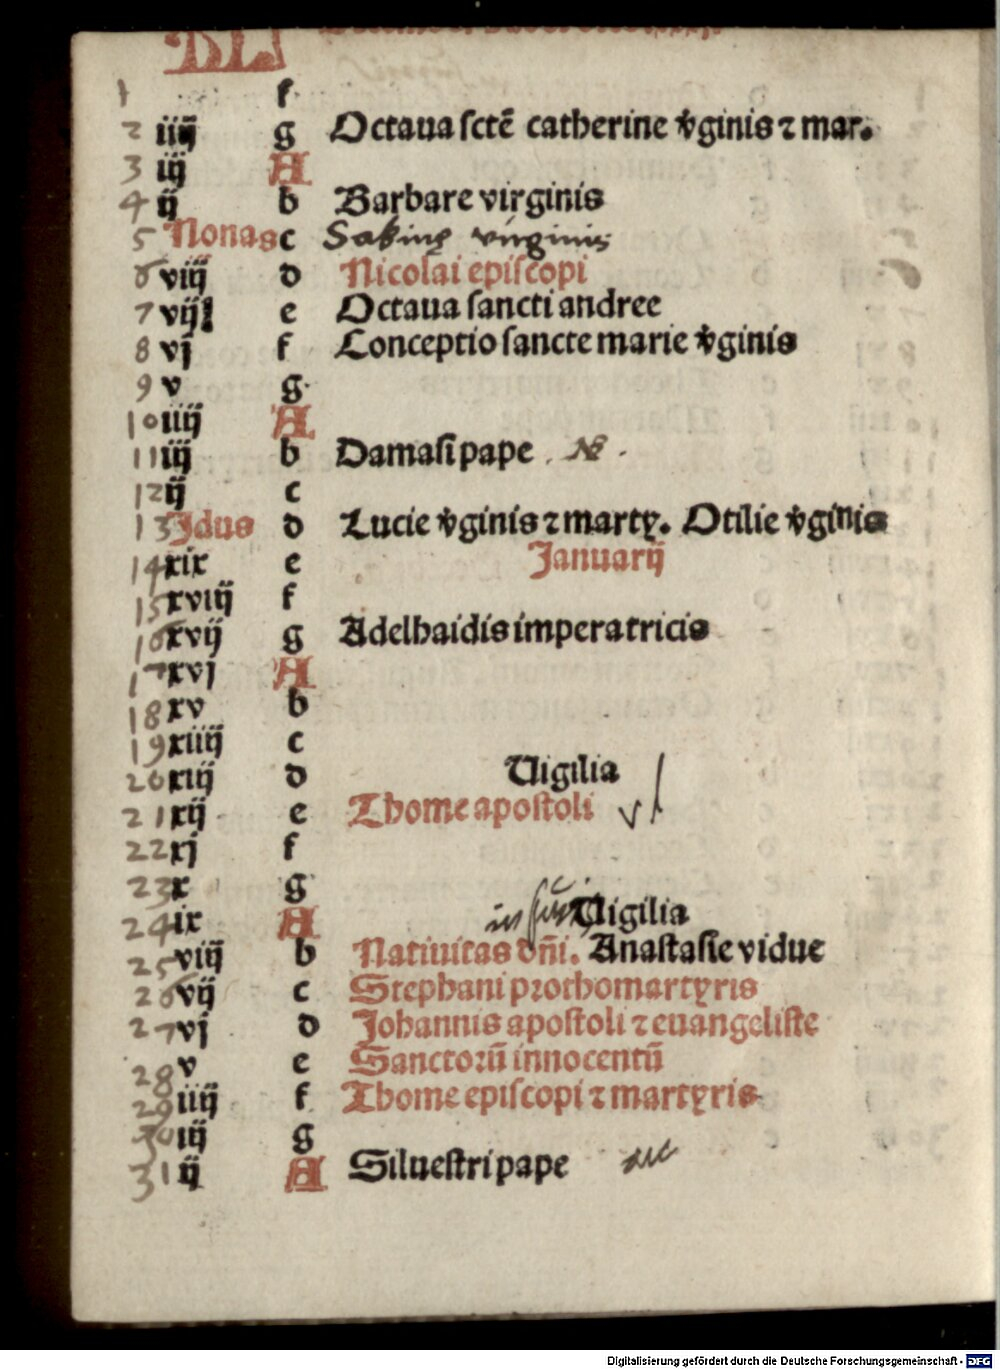 KL December habet dies xxxj.
1 f
2 iiij g Octaua sctē catherine v̄ginis ⁊ mar.
3 iij A
4 ij b Barbare virginis
5 Nonas c Sabine virginis
6 viij d Nicolai episcopi
7 vij e Octaua sancti andree
8 vj f Conceptio sancte marie v̄ginis
9 v g
10 iiij A
11 iij b Damasi pape
12 ij c
13 Jdus d Lucie v̄ginis ⁊ marty. Otilie v̄ginis
Januarij
14 xix e
15 xviij f
16 xvij g Adelhaidis imperatricis
17 xvj A
18 xv b
19 xiiij c
20 xiij d Uigilia
21 xij e Thome apostoli
22 xj f
23 x g
24 ix A Uigilia
25 viij b Natiuitas dn̄i. Anastasie vidue
26 vij c Stephani prothomartyris
27 vj d Johannis apostoli ⁊ euangeliste
28 v e Sanctorū innocentū
29 iiij f Thome episcopi ⁊ martyris
30 iij g
31 ij A Siluestri pape
Digitalisierung gefördert durch die Deutsche Forschungsgemeinschaft - DFG